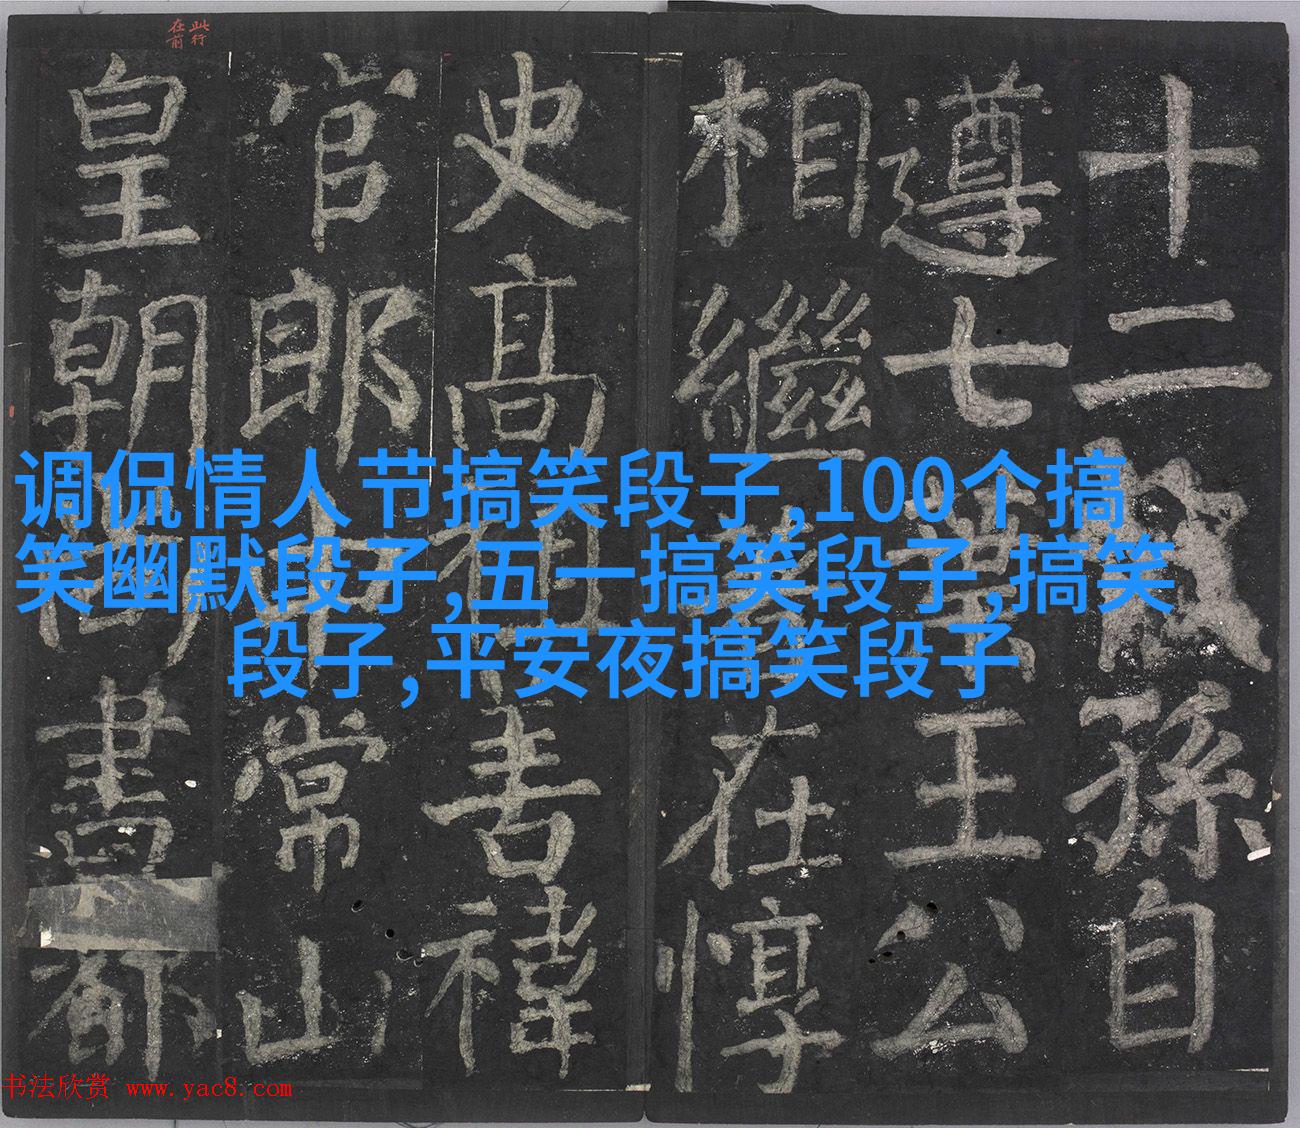 此行
在前
十二孫自
遵七王公
相繼在惇
史高祖禕
官郎中常山
皇朝尚書都
调侃情人节搞笑段子,100个搞
笑幽默段子,五一搞笑段子,搞笑
段子,平安夜搞笑段子
书法欣赏 www.yac8.com